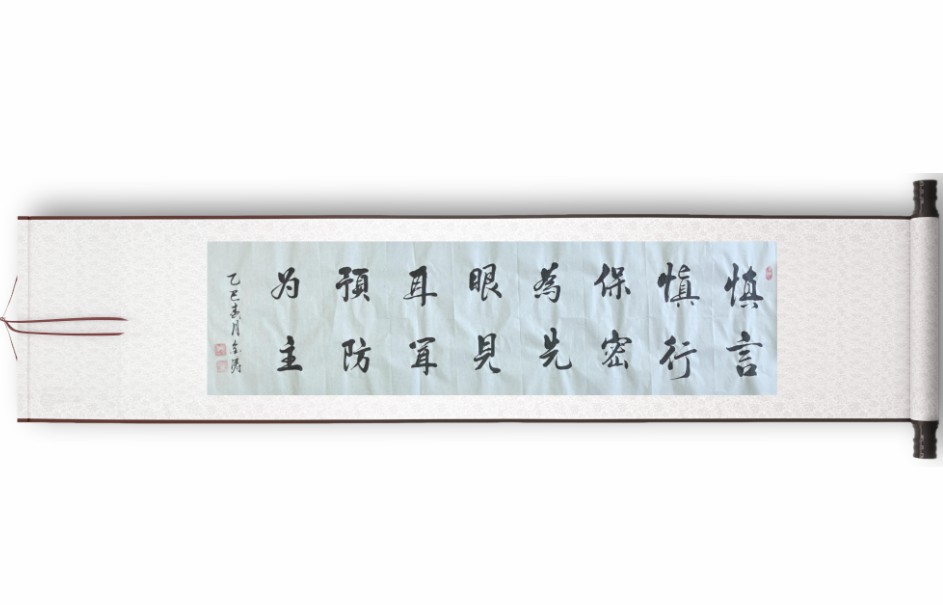 慎言
慎行
保密
為先
眼見
耳闻
預防
为主
乙巳春月